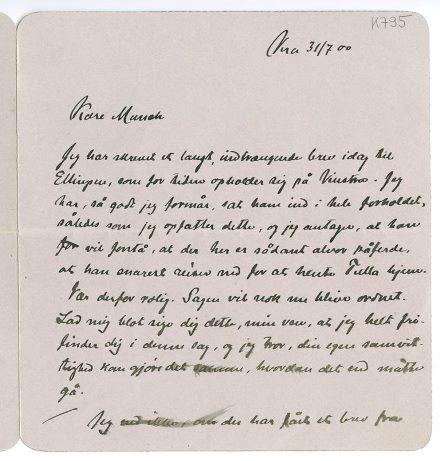 K795
Kra 31/7 00
Kære Munch
Jeg har skrevet et langt, indtrængende brev idag til
Ellingsen, som for tiden opholder sig på Vinstra. Jeg
har, så godt jeg formår, sat ham ind i hele forholdet,
således som jeg opfatter dette, og jeg antager, at han
for vil forstå, at der her er sådant alvor påferde,
at han snarest reiser ned for at hente Tulla hjem.
Vær derfor rolig. Sagen vil nok nu blive ordnet.
Lad mig blot sige dig dette, min ven, at jeg helt fri-
finder dig i denne sag, og jeg tror, din egen samvit-
tighed kan gjøre det samme, hvordan det end måtte
gå.
Jeg ved ikke, om der har fåt et brev fra